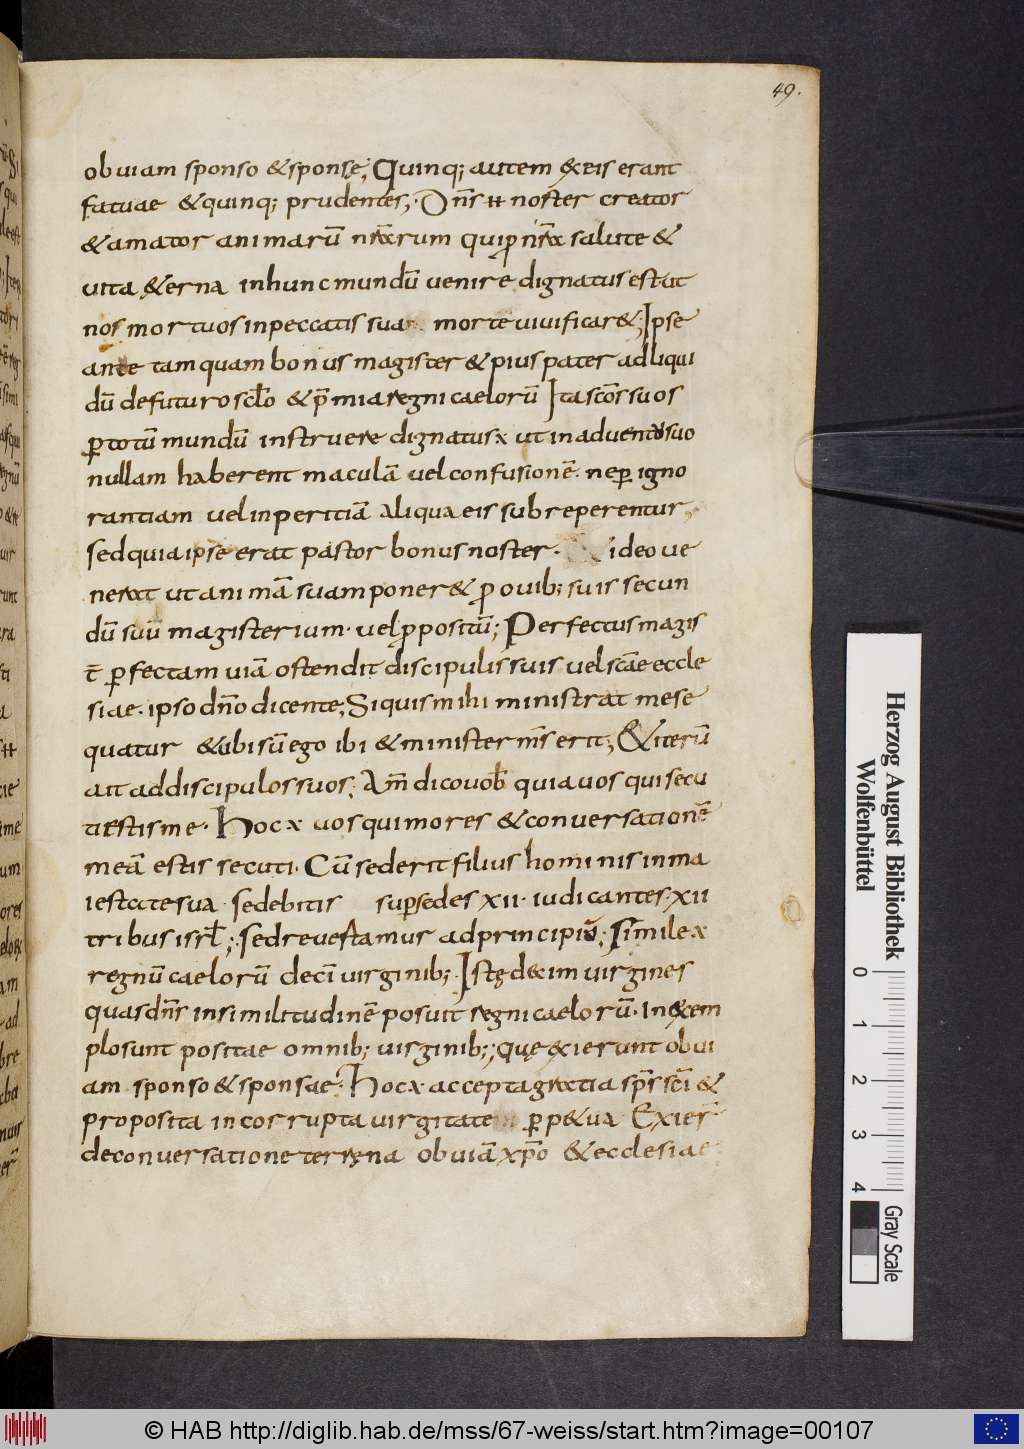 49.
obuiam sponso &sponsę; Quinq; autem &eis erant
fatuae &quinq; prudentes; Dn̄s noster creator
&amator animarū qui salute &
uita &erna inhunc mundū uenire dignatus est ut
nos mortuos inpeccatis sua morte uiuificar&; Ipse
ante tamquam bonus magister &pius pater adliqui
dū defuturo sc̄lo &p̄mia regni caelorū Ita sc̄os suos
ꝑ totū mundū instruere dignatus ut inaduento suo
nullam haberent maculā uel confusionē. neꝑ igno
rantiam uel inperitiā aliqua eis subreperentur
sed quia ipse erat pastor bonus noster. ideo ue
nerat ut animā suam poner& ꝓ ouib; suis secun
dū suū magisterium. uel ꝓpositū; Perfectus magis
t̄ ꝑfectam uiā ostendit discipulis suis uel sc̄ae eccle
siae. ipso dn̄o dicente; Siquis mihi ministrat me se
quatur &ubi sū ego ibi &minister m̄s erit; &iterū
ait addiscipulos suos; Am̄ dico uob̄ quia uos qui secu
ti estis me. Hoc uos qui mores &conuersationē
meā estis secuti. Cū sederit filius hominis in ma
iestate sua. sedebitis suꝑ sedes xii. iudicantes. xii
tribus isrl̄; sed reuertamur ad principiū; Simile
regnū caelorū decī uirginib;. Istę decim uirgines
quas dn̄s in similitudinē posuit regni caelorū. In exem
plosunt positae omnib; uirginib;; quę exierunt obui
am sponso &sponsae. Hoc accepta gratia sp̄s sc̄i &
proposita incorrupta uirgitate ꝑp&ua Exier̄
deconuersatione terręna obuiā xp̄o &ecclesiae
Herzog August Bibliothek
Wolfenbüttel
0 1 2 3 4
Gray Scale
© HAB http://diglib.hab.de/mss/67-weiss/start.htm?image=00107